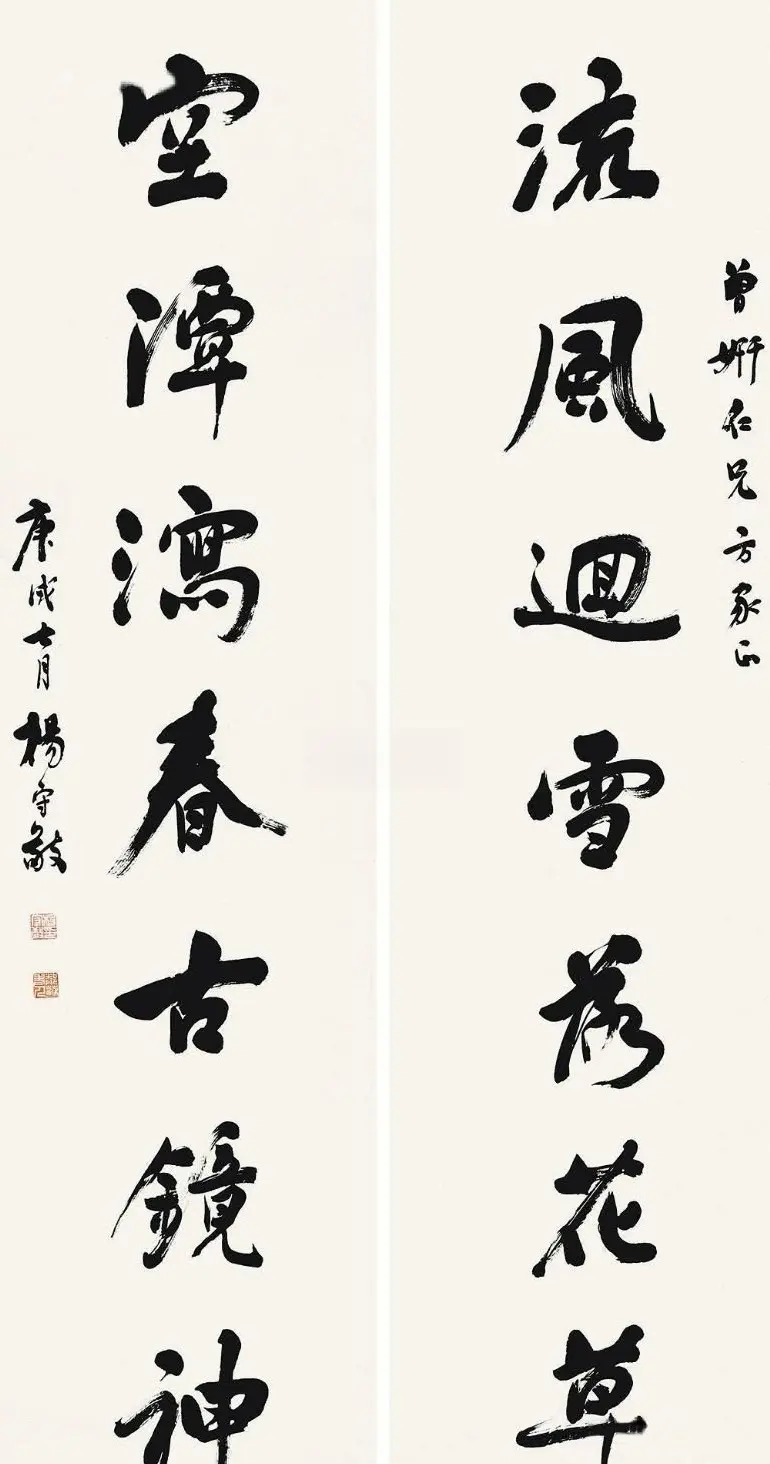 曾姸仁兄方家正
流風迴雪落花草
空潭瀉春古鏡神
庚戌七月楊守敬